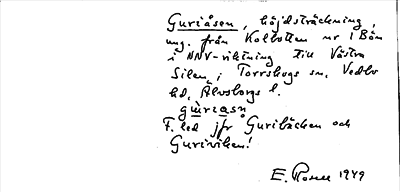 Guriåsen, höjdsträckning,
ung. från Kolbotten nr 1 Bön
i NNV-riktning till Västra
Silen, i Torrskogs sn, Vedbo
hd, Älvsborgs l.
gùriasn
F. led jfr Guribäcken och
Guriviken!
E. Rosell 1949